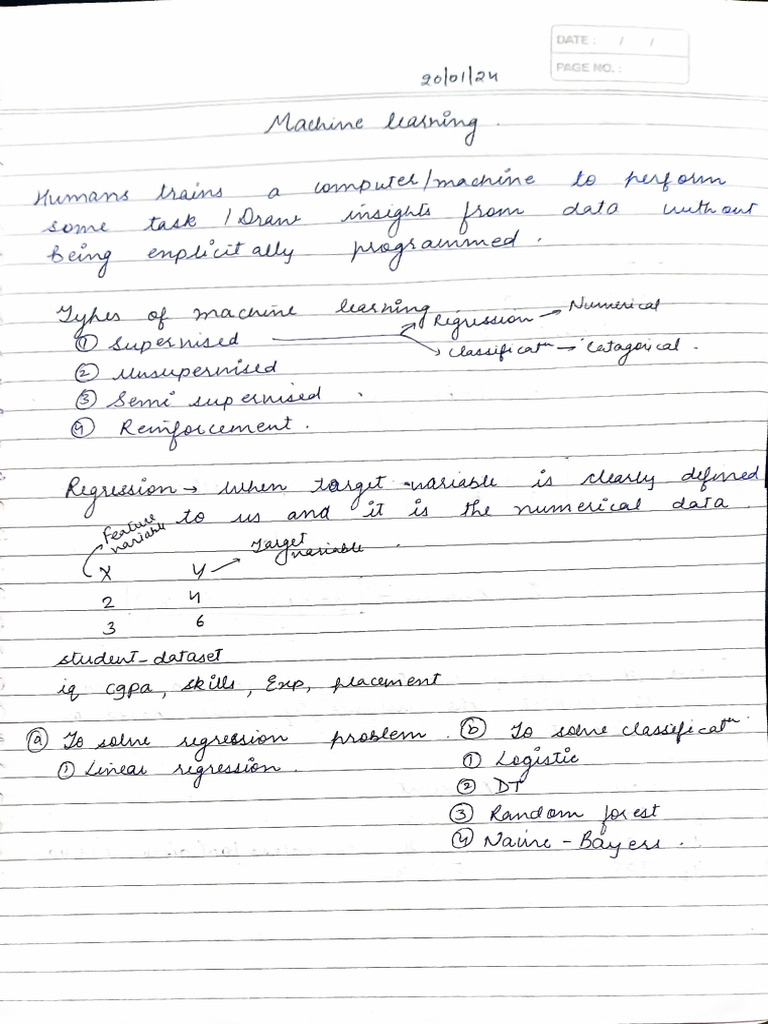 DATE : / /
PAGE NO. :
20/01/24
Machine learning.
Humans trains a computer/machine to perform
some task / Draw insights from data without
being explicitally programmed.
Types of machine learning
① Supervised → Regression → Numerical
→ Classificatn → Catagorical.
② Unsupervised
③ Semi supervised
④ Reinforcement.
Regression → when target variable is clearly defined
to us and it is the numerical data.
Feature variable
Target variable
X Y
2 4
3 6
student_dataset
iq cgpa, skills, Exp, placement
ⓐ To solve regression problem.
① Linear regression.
ⓑ To solve classificatn.
① Logistic
② DT
③ Random forest
④ Naive - Bayers.